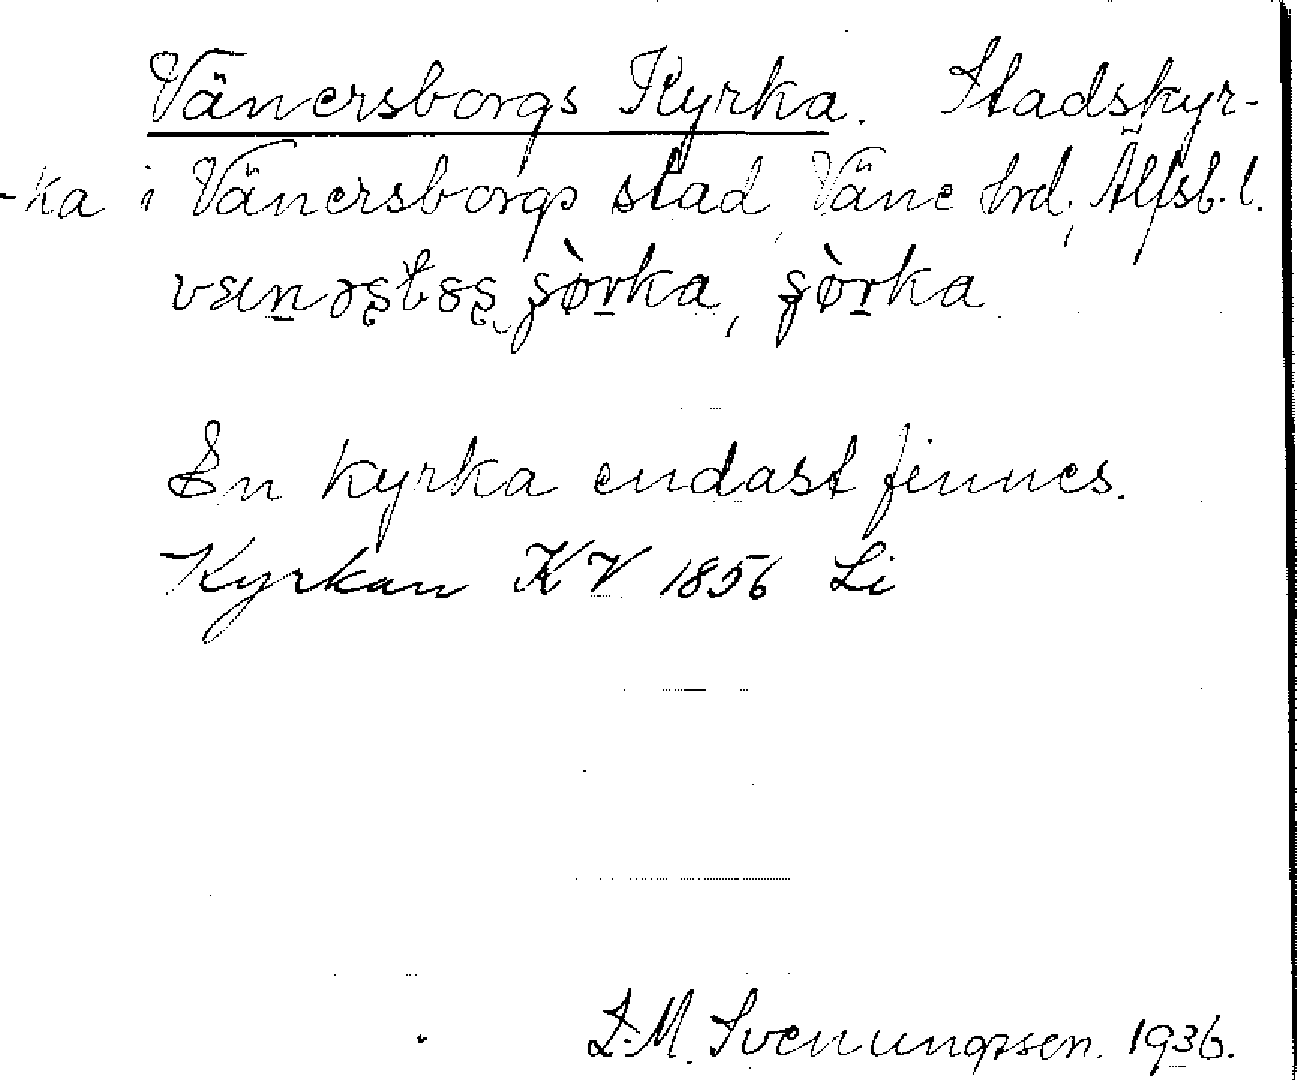 Vänersborgs Kyrka. Stadskyr-
-ka i Vänersborgs stad, Väne hrd; Älfsb. l.
ka, ka.
En kyrka endast finnes.
Kyrkan KV 1856 Li
M. Svenungsen. 1936.